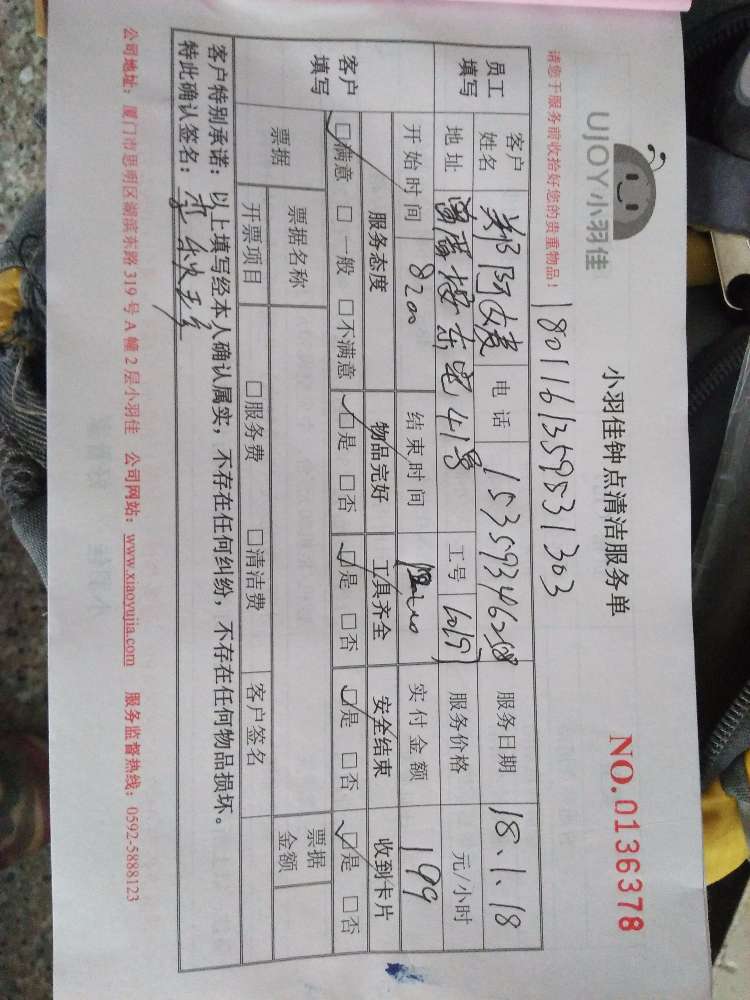 UJOY小羽佳
小羽佳钟点清洁服务单
NO.0136378
请您于服务前收拾好您的贵重物品！
180116135953 1303
员工填写
客户姓名 郑阿 电话 15359346258 服务日期 18.1.18
地址 东 41号 工号 服务价格 元/小时
开始时间 8:00 结束时间 实付金额 199
客户填写
服务态度 物品完好 工具齐全 安全结束 收到卡片
☑满意 □一般 □不满意 ☑是 □否 ☑是 □否 ☑是 □否 ☑是 □否
票据 票据名称 票据金额
开票项目 □服务费 □清洁费 客户签名
客户特别承诺：以上填写经本人确认属实，不存在任何纠纷，不存在任何物品损坏。
特此确认签名：
公司地址：厦门市思明区湖滨东路319号A幢2层小羽佳 公司网站：www.xiaoyujia.com 服务监督热线：0592-5888123